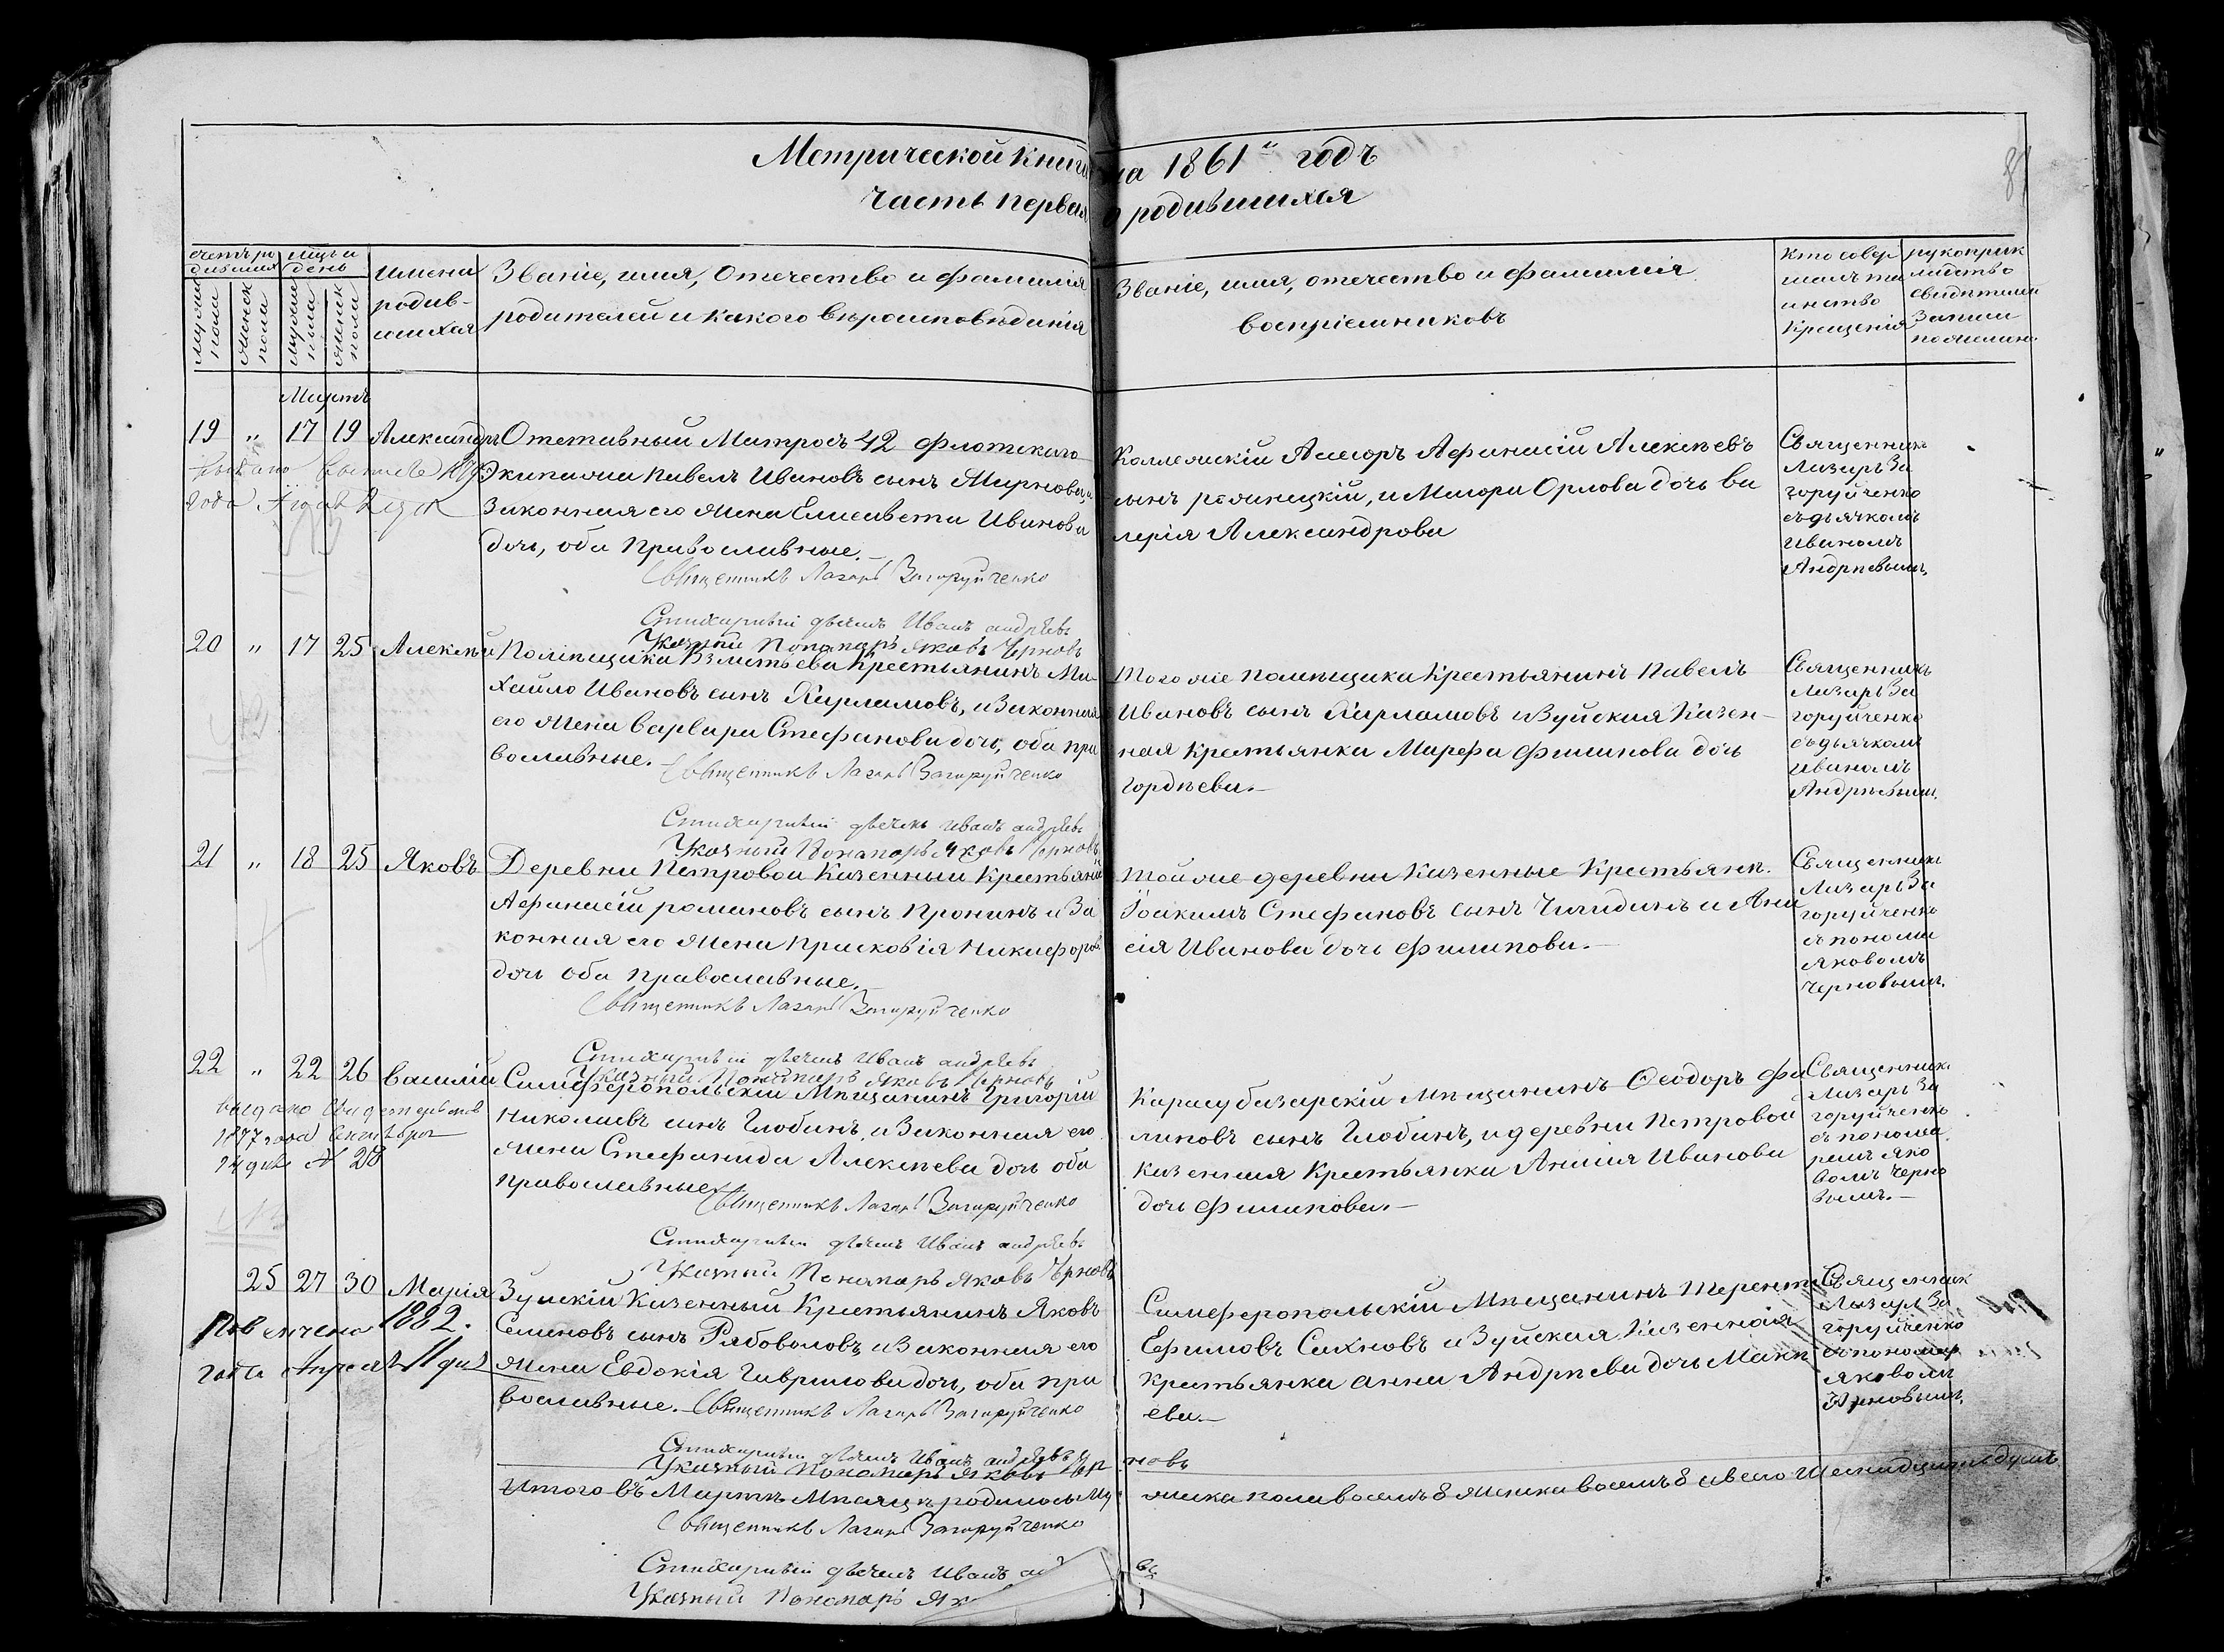 Метрической книги на 1861й годъ
Часть первая о родившихся
87
счетъ ро
дившихся
мѣцъ и
день
мужска
пола
женск
пола
мужска
пола
женск
пола
имена
родив-
шихся
Званіе, имя, отечество и фамилія
родителей и какого вѣроисповѣданія
Званіе, имя, отечество и фамилія
воспріемниковъ
Кто совер
шалъ та
инство
Крещенія
рукоприк
ладство
свидѣтелей
записи
по желанію
Мартъ
19 " 17 19 Александръ
Отставный Матрозъ 42 Флотскаго
Экипажа Павелъ Ивановъ сынъ Мирновъ, и
Законная его Жена Елисавета Иванова
дочь, оба Православные.-
Священникъ Лазарь Загоруйченко
Стихарный дьячекъ Иванъ Андрѣевъ
Указный Пономарь Яковъ Черновъ
Коллежскій Асесоръ Афанасій Алексѣевъ
сынъ рожницкій, и Маіора Орлова дочь Ва
лерія Александрова
Священникъ
Лазарь За
горуйченко
съ дьячкомъ
Иваномъ
Андрѣевымъ,
20 " 17 25 Алексѣй
Помѣщика Крестьянинъ Ми-
хайло Ивановъ сынъ Харламовъ, и Законная
его Жена Варвара Стефанова дочь, оба пра
вославные.-
Священникъ Лазарь Загоруйченко
Стихарный дьячекъ Иванъ Андрѣевъ
Указный Пономарь Яковъ Черновъ
Того же помѣщика Крестьянинъ Павелъ
Ивановъ сынъ Харламовъ и Зуйская Казен-
ная Крестьянка Марфа Филипова дочь
Гордѣева.-
Священникъ
Лазарь За
горуйченко
съ дьячкомъ
Иваномъ
Андрѣевымъ,
21 " 18 25 Яковъ
Деревни Петровой Казенный Крестьянинъ
Афанасій романовъ сынъ Пронинъ и За
конная его Жена Прасковія Никифорова
дочь оба Православные.-
Священникъ Лазарь Загоруйченко
Стихарный дьячекъ Иванъ Андрѣевъ
Указный Пономарь Яковъ Черновъ
Той же деревни Казенные Крестьяне
Іоакимъ Стефановъ сынъ и Ани
сія Иванова дочь Филипова.-
Священникъ
Лазарь За
горуйченко
съ понома
Яковомъ
Черновымъ,
22 " 22 26 Василій
выдано свидетельство
1877 года
14 дня № 28
Симферопольскій Мѣщанинъ Григорій
Николаевъ сынъ Глобинъ, и Законная его
Жена Стефанида Алексѣева дочь оба
православные
Священникъ Лазарь Загоруйченко
Стихарный дьячекъ Иванъ Андрѣевъ
Указный Пономарь Яковъ Черновъ
Карасубазарскій Мѣщанинъ Ѳеодоръ Фи
липовъ сынъ Глобинъ, и деревни Петровой
Казенная Крестьянка Анисія Иванова
дочь Филипова.-
Священникъ
Лазарь За
горуйченко
съ понома
ремъ Яко
вомъ Черно
вымъ.-
25 27 30 Марія
Повѣнчена 1882.
года Апреля 11 дня
Зуйскій Казенный Крестьянинъ Яковъ
Семеновъ сынъ Рябоволовъ, и Законная его
Жена Евдокія Гаврилова дочь, оба пра
вославные.-
Священникъ Лазарь Загоруйченко
Стихарный дьячекъ Иванъ Андрѣевъ
Указный Пономарь Яковъ Черновъ
Симферопольскій Мѣщанинъ Терентій
Ефимовъ Сахновъ и Зуйская Казенная
Крестьянка Анна Андрѣева дочь Макѣ
ева.-
Священник
Лазарь За
горуйченко
съ пономар
Яковомъ
Черновымъ,
Итого въ Мартѣ Мѣсяцѣ родилось му-
жска пола восемъ 8 женска восемъ 8 и всего Шестнадцать душъ.
Священникъ Лазарь Загоруйченко
Стихарный дьячекъ Иванъ
Указный Пономарь Як